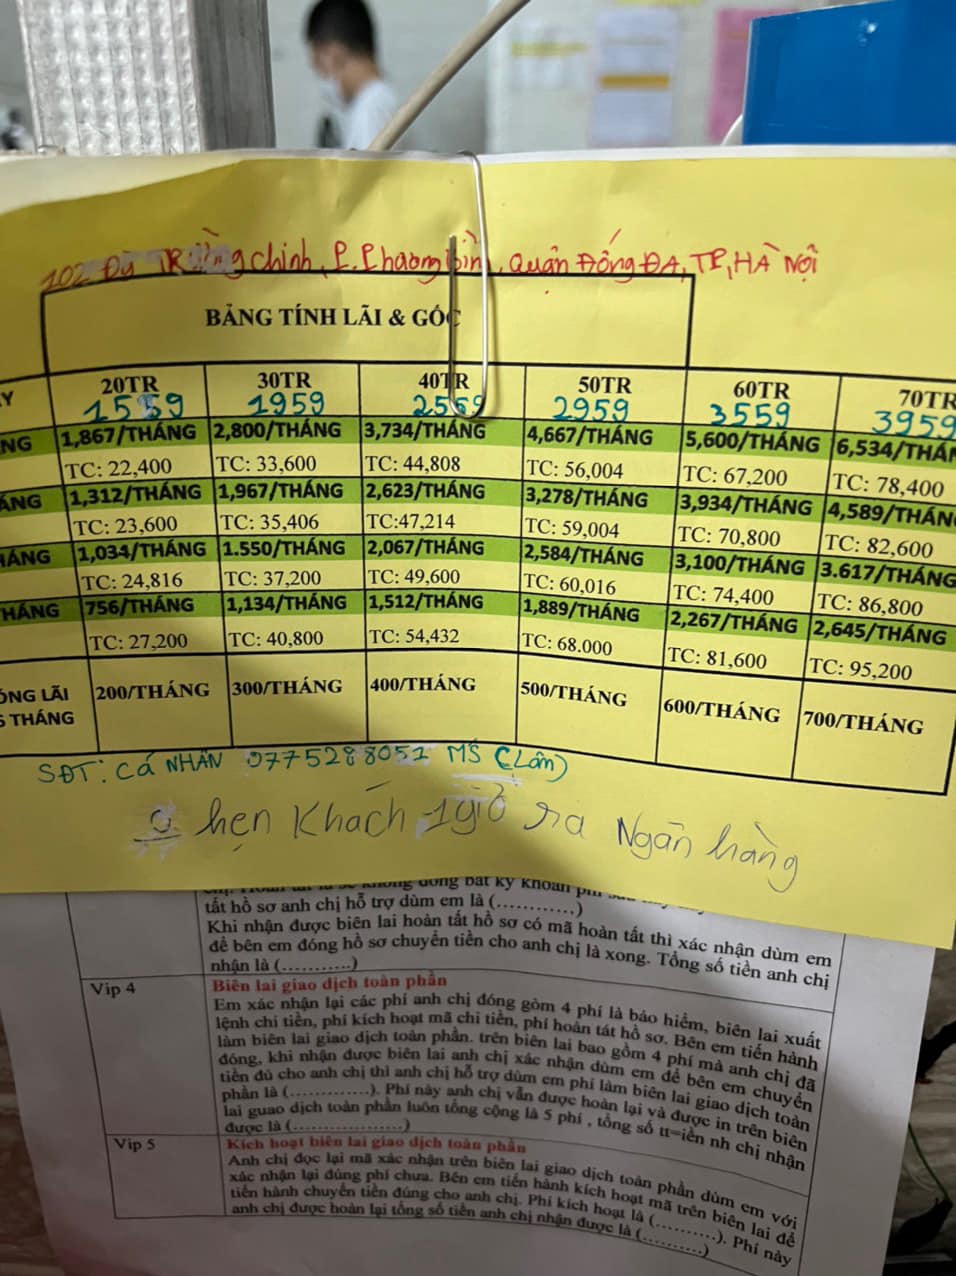 102 Đg Trường chinh, P. Phương Đình, Quận Đống ĐA, TP, HÀ NỘI
BẢNG TÍNH LÃI & GỐC
Y 20TR 30TR 40TR 50TR 60TR 70TR
1559 1959 2559 2959 3559 3959
NG 1,867/THÁNG 2,800/THÁNG 3,734/THÁNG 4,667/THÁNG 5,600/THÁNG 6,534/THÁN
TC: 22,400 TC: 33,600 TC: 44,808 TC: 56,004 TC: 67,200 TC: 78,400
ÁNG 1,312/THÁNG 1,967/THÁNG 2,623/THÁNG 3,278/THÁNG 3,934/THÁNG 4,589/THÁN
TC: 23,600 TC: 35,406 TC:47,214 TC: 59,004 TC: 70,800 TC: 82,600
HÁNG 1,034/THÁNG 1.550/THÁNG 2,067/THÁNG 2,584/THÁNG 3,100/THÁNG 3.617/THÁNG
TC: 24,816 TC: 37,200 TC: 49,600 TC: 60,016 TC: 74,400 TC: 86,800
HÁNG 756/THÁNG 1,134/THÁNG 1,512/THÁNG 1,889/THÁNG 2,267/THÁNG 2,645/THÁNG
TC: 27,200 TC: 40,800 TC: 54,432 TC: 68.000 TC: 81,600 TC: 95,200
ÓNG LÃI 200/THÁNG 300/THÁNG 400/THÁNG 500/THÁNG 600/THÁNG 700/THÁNG
6 THÁNG
SĐT: Cá NHÂN 0775288051 MS (Lâm)
hẹn Khách 1 giờ ra Ngân hàng
không đóng bất kỳ khoản phí
tất hồ sơ anh chị hỗ trợ dùm em là (............)
Khi nhận được biên lai hoàn tất hồ sơ có mã hoàn tất thì xác nhận dùm em
để bên em đóng hồ sơ chuyển tiền cho anh chị là xong. Tổng số tiền anh chị
nhận là (...........)
Vip 4 Biên lai giao dịch toàn phần
Em xác nhận lại các phí anh chị đóng gòm 4 phí là bảo hiểm, biên lai xuất
lệnh chi tiền, phí kích hoạt mã chi tiền, phí hoàn tát hồ sơ. Bên em tiến hành
làm biên lai giao dịch toàn phần. trên biên lai bao gồm 4 phí mà anh chị đã
đóng, khi nhận được biên lai anh chị xác nhận dùm em để bên em chuyển
tiền đủ cho anh chị thì anh chị hỗ trợ dùm em phí làm biên lai giao dịch toàn
phần là (...............). Phí này anh chị vẫn được hoàn lại và được in trên biên
lai guao dịch toàn phần luôn tổng cộng là 5 phí , tổng số tt=iền nh chị nhận
được là (....................)
Vip 5 Kích hoạt biên lai giao dịch toàn phần
Anh chị đọc lại mã xác nhận trên biên lai giao dịch toàn phần dùm em với
xác nhận lại đúng phí chưa. Bên em tiến hành kích hoạt mã trên biên lai để
tiến hành chuyển tiền đúng cho anh chị. Phí kích hoạt là (...........). Phí này
anh chị được hoàn lại tổng số tiền anh chị nhận được là (...........)